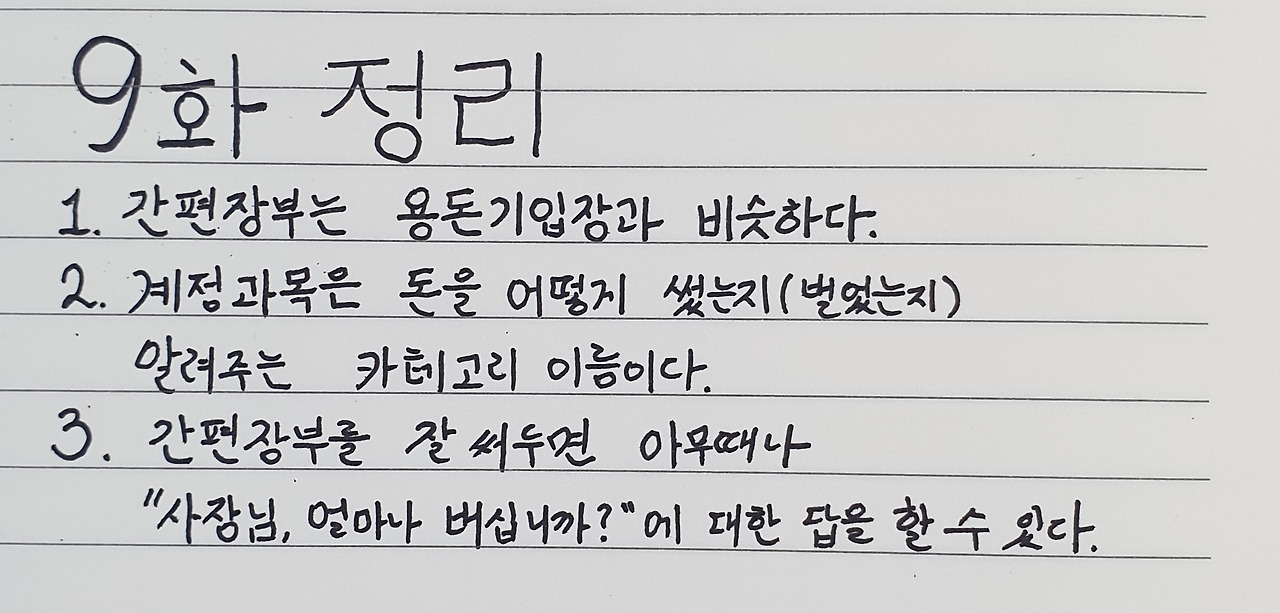 9화 정리
1. 간편장부는 용돈기입장과 비슷하다.
2. 계정과목은 돈을 어떻게 썼는지(벌었는지)
알려주는 카테고리 이름이다.
3. 간편장부를 잘 써두면 아무때나
"사장님, 얼마나 버십니까?"에 대한 답을 할 수 있다.